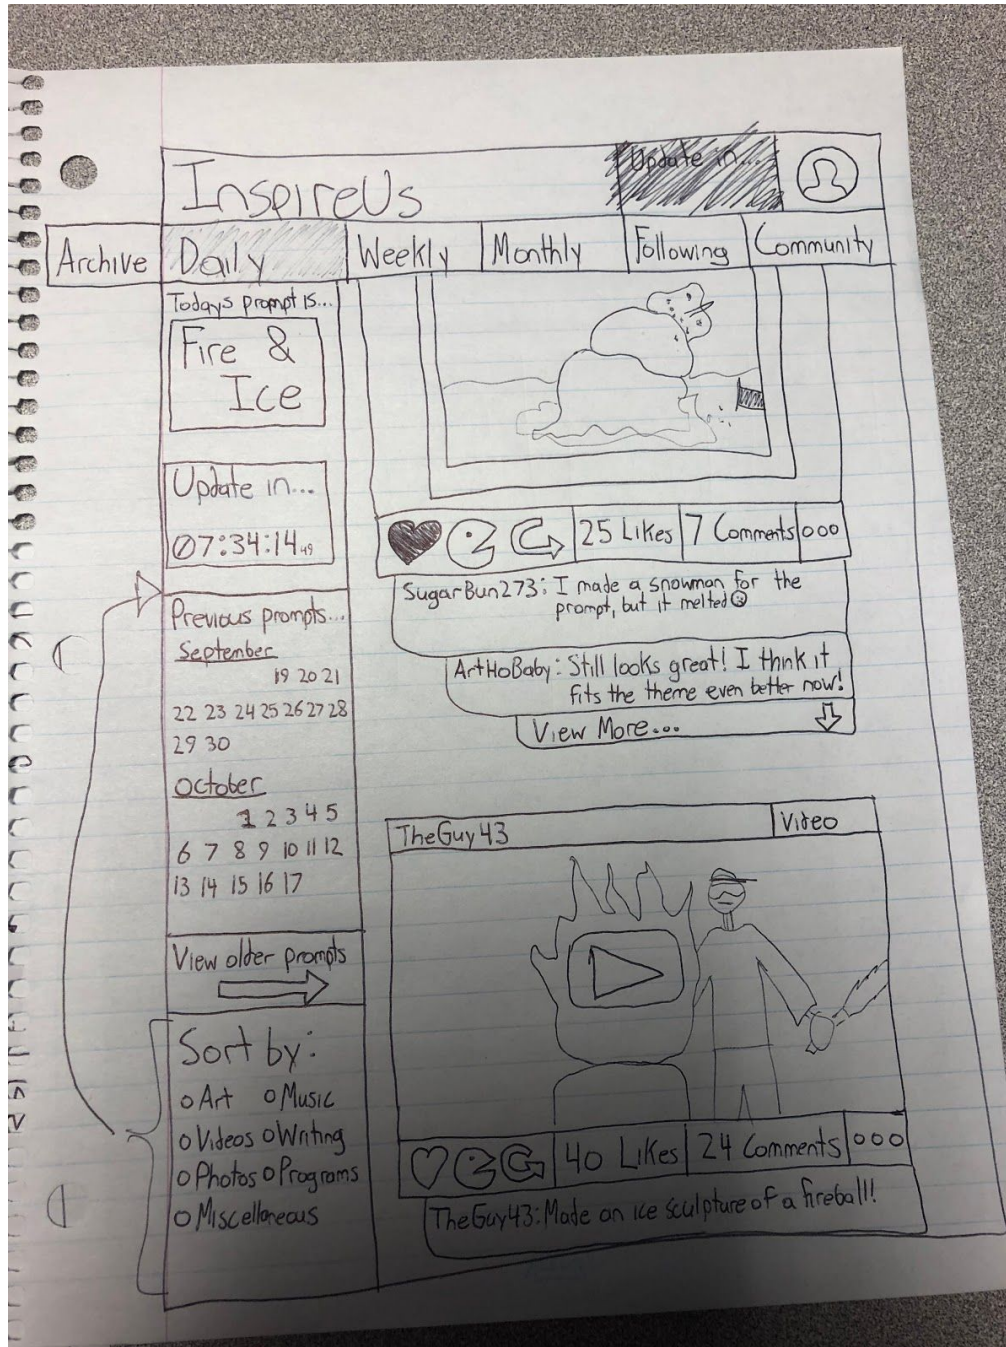 InspireUs
Update in...
Archive Daily Weekly Monthly Following Community
Todays prompt is...
Fire &
Ice
Update in...
07:34:14 49
Previous prompts...
September
19 20 21
22 23 24 25 26 27 28
29 30
October
1 2 3 4 5
6 7 8 9 10 11 12
13 14 15 16 17
View older prompts
Sort by:
Art Music
Videos Writing
Photos Programs
Miscellaneous
25 Likes 7 Comments
SugarBun273: I made a snowman for the
prompt, but it melted
ArtHoBaby: Still looks great! I think it
fits the theme even better now!
View More...
TheGuy43 Video
40 Likes 24 Comments
TheGuy43: Made an ice sculpture of a fireball!